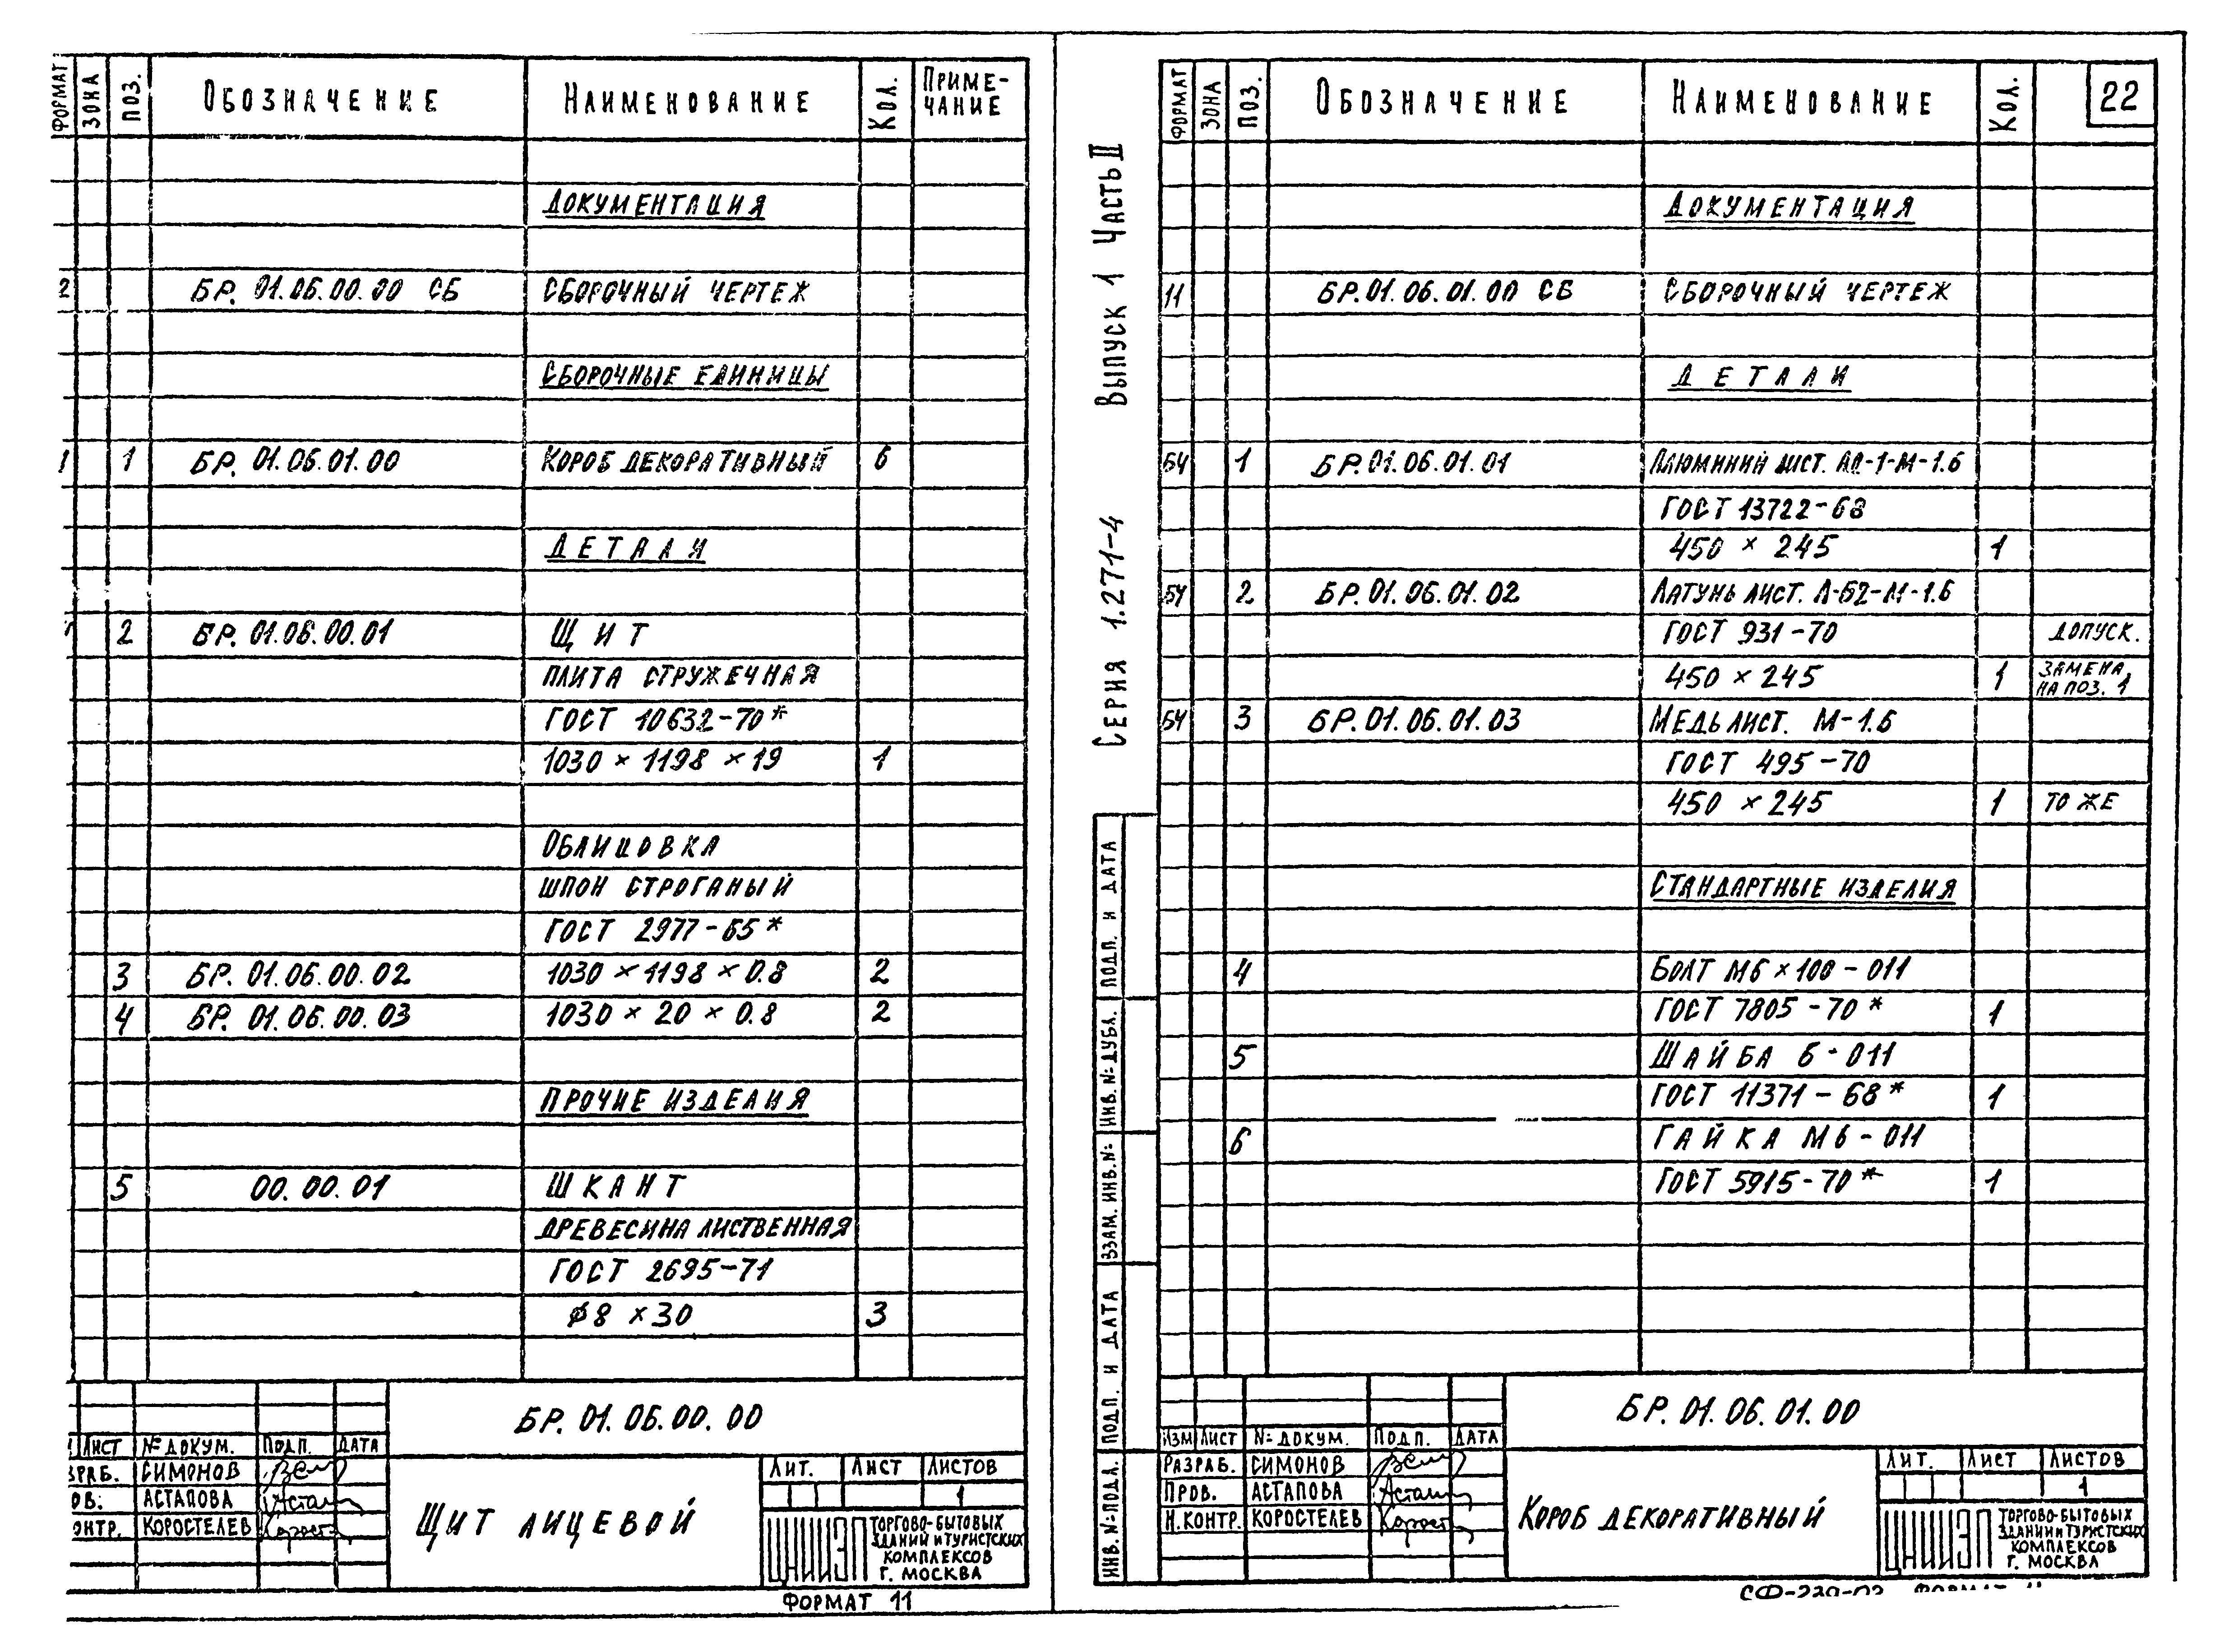 ФОРМАТ ЗОНА ПОЗ. ОБОЗНАЧЕНИЕ НАИМЕНОВАНИЕ КОЛ. ПРИМЕ-
ЧАНИЕ
ДОКУМЕНТАЦИЯ
2 БР. 01.06.00.00 СБ СБОРОЧНЫЙ ЧЕРТЕЖ
СБОРОЧНЫЕ ЕДИНИЦЫ
1 БР. 01.06.01.00 КОРОБ ДЕКОРАТИВНЫЙ 6
ДЕТАЛИ
2 БР. 01.06.00.01 ЩИТ
ПЛИТА СТРУЖЕЧНАЯ
ГОСТ 10632-70*
1030 × 1198 × 19 1
ОБЛИЦОВКА
ШПОН СТРОГАНЫЙ
ГОСТ 2977-65*
3 БР. 01.06.00.02 1030 × 1198 × 0.8 2
4 БР. 01.06.00.03 1030 × 20 × 0.8 2
ПРОЧИЕ ИЗДЕЛИЯ
5 00.00.01 ШКАНТ
ДРЕВЕСИНА ЛИСТВЕННАЯ
ГОСТ 2695-71
ф8 × 30 3
БР. 01.06.00.00
ЛИСТ № ДОКУМ. ПОДП. ДАТА
ЗРАБ. СИМОНОВ
ОВ. АСТАПОВА
ОНТР. КОРОСТЕЛЕВ
ЩИТ ЛИЦЕВОЙ
ЛИТ. ЛИСТ ЛИСТОВ
1
ЦНИИЭП ТОРГОВО-БЫТОВЫХ
ЗДАНИЙ И ТУРИСТСКИХ
КОМПЛЕКСОВ
Г. МОСКВА
ФОРМАТ 11
СЕРИЯ 1.271-4 ВЫПУСК 1 ЧАСТЬ II
ИНВ. № ПОДЛ. ПОДП. И ДАТА ВЗАМ. ИНВ. № ИНВ. № ДУБЛ. ПОДП. И ДАТА
ФОРМАТ ЗОНА ПОЗ. ОБОЗНАЧЕНИЕ НАИМЕНОВАНИЕ КОЛ. 22
ДОКУМЕНТАЦИЯ
11 БР.01.06.01.00 СБ СБОРОЧНЫЙ ЧЕРТЕЖ
ДЕТАЛИ
БЧ 1 БР.01.06.01.01 АЛЮМИНИЙ ЛИСТ. АД-1-М-1.6
ГОСТ 13722-68
450 × 245 1
БЧ 2 БР.01.06.01.02 ЛАТУНЬ ЛИСТ. Л-62-М-1.6
ГОСТ 931-70 ДОПУСК.
450 × 245 1 ЗАМЕНА
НА ПОЗ. 1
БЧ 3 БР.01.06.01.03 МЕДЬ ЛИСТ. М-1.6
ГОСТ 495-70
450 × 245 1 ТО ЖЕ
СТАНДАРТНЫЕ ИЗДЕЛИЯ
4 БОЛТ М6 × 100-011
ГОСТ 7805-70* 1
5 ШАЙБА 6-011
ГОСТ 11371-68* 1
6 ГАЙКА М6-011
ГОСТ 5915-70* 1
БР.01.06.01.00
ИЗМ ЛИСТ № ДОКУМ. ПОДП. ДАТА
РАЗРАБ. СИМОНОВ
ПРОВ. АСТАПОВА
Н.КОНТР. КОРОСТЕЛЕВ
КОРОБ ДЕКОРАТИВНЫЙ
ЛИТ. ЛИСТ ЛИСТОВ
1
ЦНИИЭП ТОРГОВО-БЫТОВЫХ
ЗДАНИЙ И ТУРИСТСКИХ
КОМПЛЕКСОВ
Г. МОСКВА